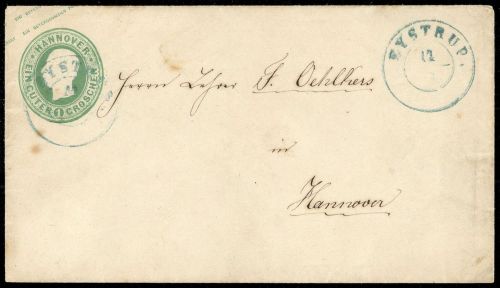 HANNOVER
EIN GUTER GROSCHEN
1
EYSTRUP.
Herrn Lehrer F. Oehlkers
in
Hannover